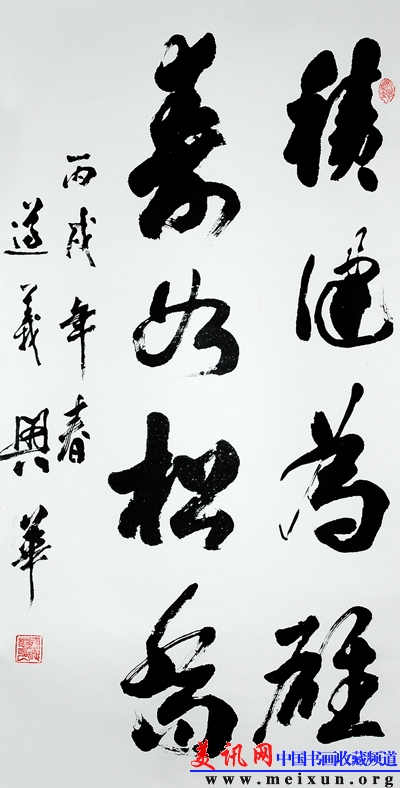 積健為雄
壽如松喬
丙戌年春
遵義興華
美讯网 中国书画收藏频道
www.meixun.org